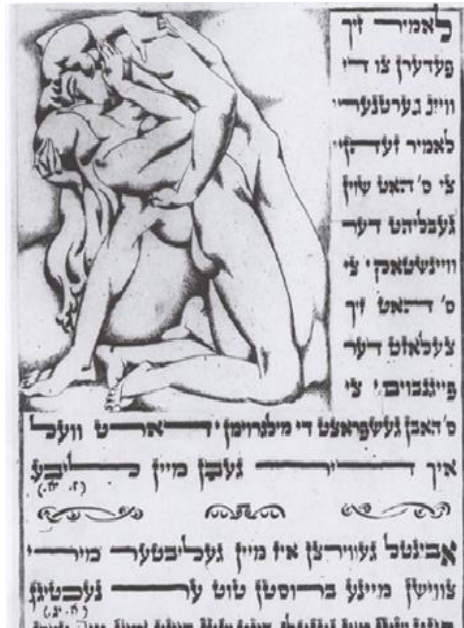 לאמיר זיך
פעדערן צו די
וויינגערטנער׳
לאמיר זעהן׳
צי ס׳האט שוין
געבליהט דער
וויינשטאק׳ צי
ס׳האט זיך
צעלאזט דער
פייגנבוים׳ צי
ס׳האבן געשפראצט די מילגרוימן׳ דארט וועל
איך דיר געבן מיין ליבע
(ז. יג.)
א בינטל געווירצן איז מיין געליבטער מיר׳
צווישן מיינע ברוסטן טוט ער נעכטיגן
(א. יג.)